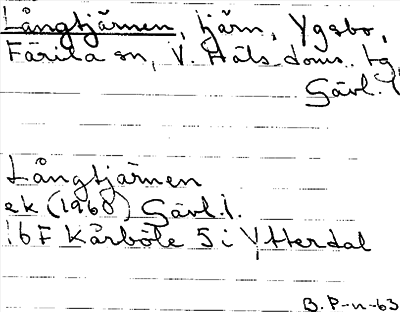 Långtjärnen, tjärn, Ygsbo,
Färila sn, V. Häls. doms. tg,
Gävl. l
Långtjärnen
ek (1968) Gävl. l.
16F Kårböle 5 i Ytterdal
B. P-n-63